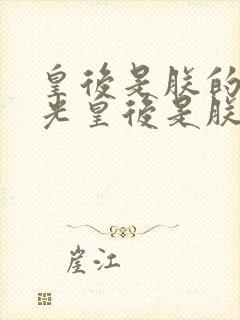 皇後是朕的
光皇後是朕
崖江